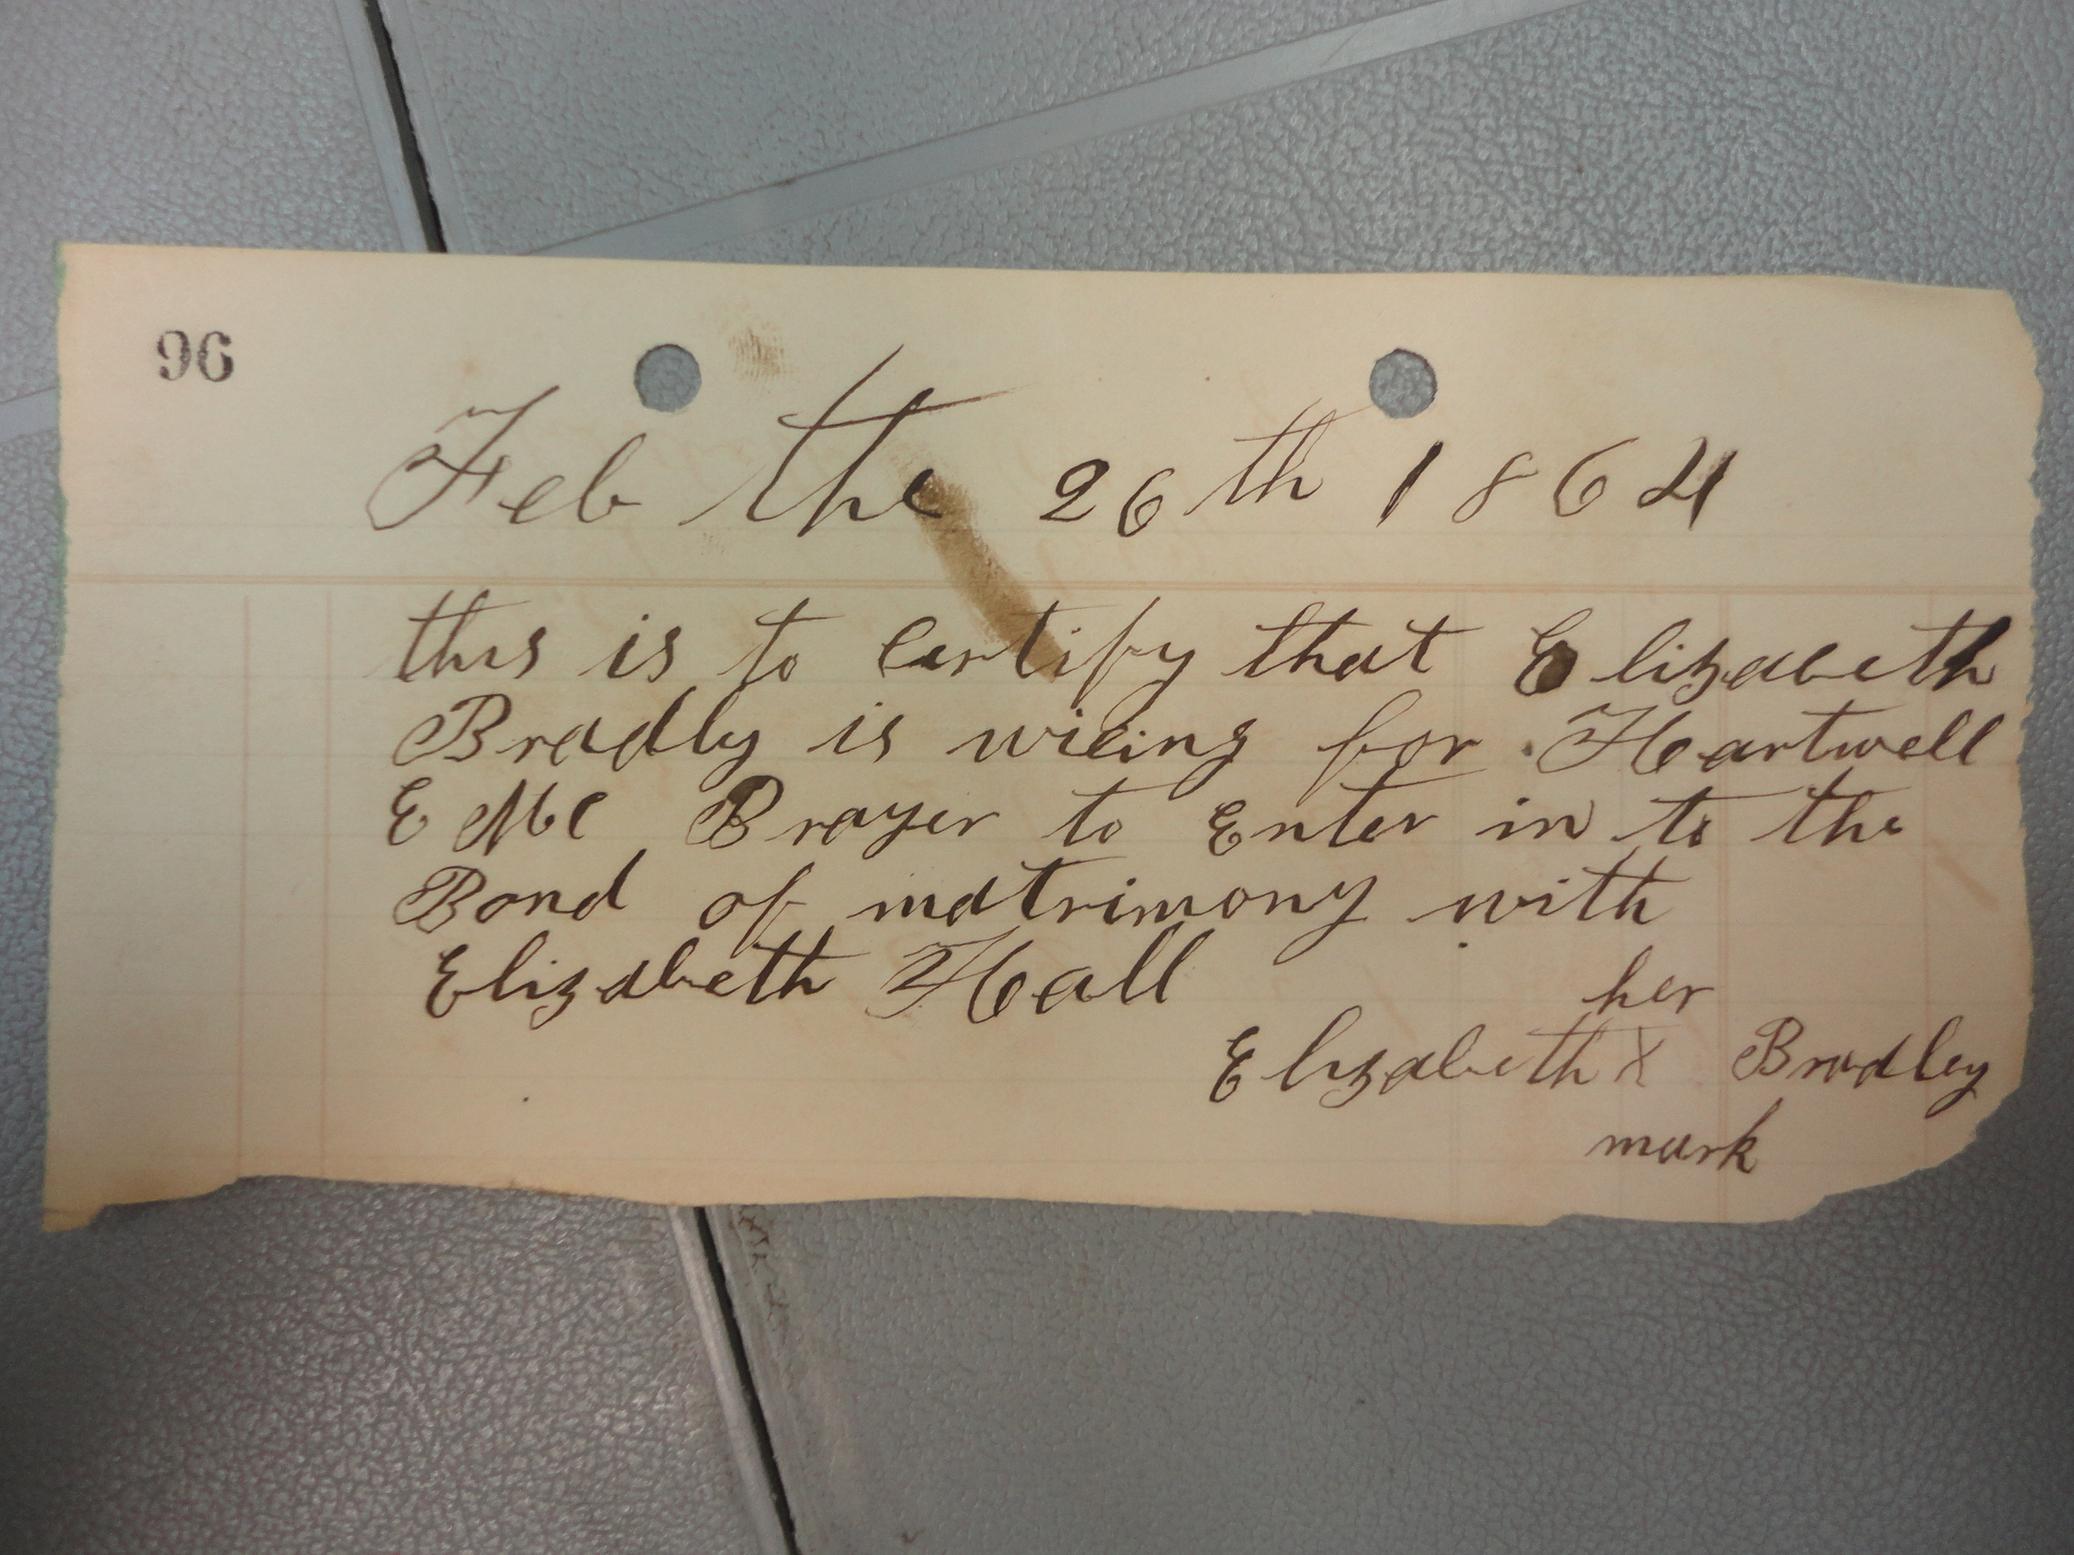 96
Feb the 26th 1864
this is to Certify that Elizabeth
Bradly is wieing for Hartwell
E Mc Brayer to Enter in to the
Bond of matrimony with
Elizabeth Hall
her
Elizabeth X Bradley
mark